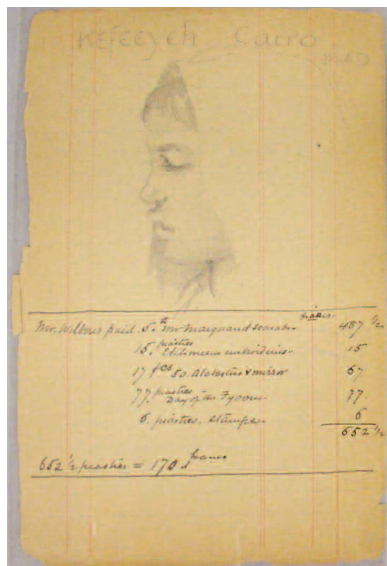 Kefeeyeh Cairo
piastres
Mr. Wilbour paid. 5. to Mr Marquand scarabs. 487 1/2
15. piastres embroideries. 15
17 fcs 50. Alabastus & mirror 67
77. piastres Day of the Fyoom. 77.
6. piastres, stamps. 6
652 1/2
652 1/2 piastres = 170 francs